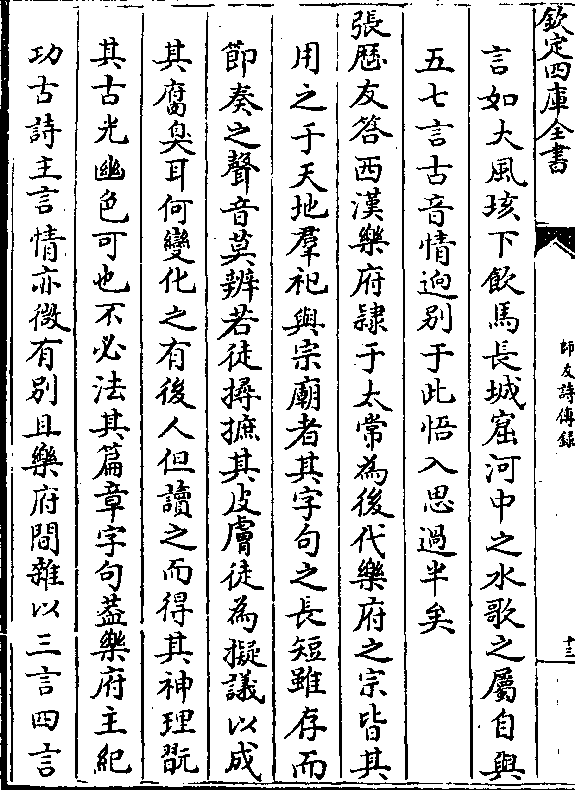 欽定四庫全書
師友詩傳錄
十三
言如大風垓下飲馬長城窟河中之水歌之屬自與
五七言古音情逈別于此悟入思過半矣
張歴友答西漢樂府隷于太常為後代樂府之宗皆其
用之于天地羣祀與宗廟者其字句之長短雖存而
節奏之聲音莫辨若徒撏摭其皮膚徒為擬議以成
其腐臭耳何變化之有後人但讀之而得其神理翫
其古光幽色可也不必法其篇章字句葢樂府主紀
功古詩主言情亦微有別且樂府間雜以三言四言